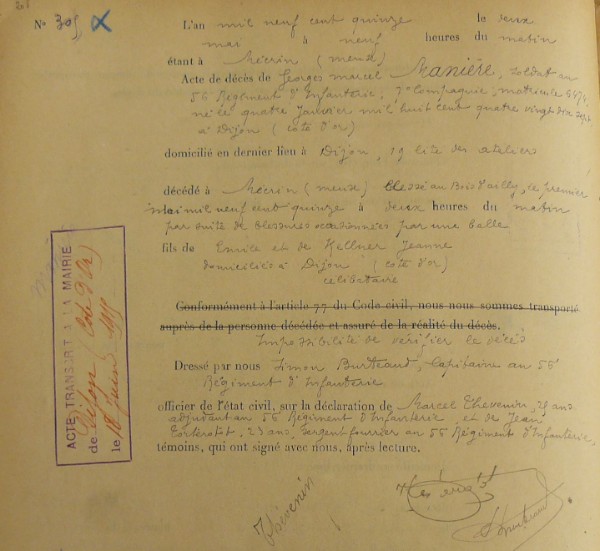 N° 305
L'an mil neuf cent quinze le deux
mai à neuf heures du matin
étant à Mécrin (meuse)
Acte de décès de Georges marcel Manière, soldat au
56 Régiment d'Infanterie, 7° Compagnie, matricule
né le quatre Janvier mil huit cent quatre vingt dix sept
à Dijon (cote d'or)
domicilié en dernier lieu à Dijon, 19 cité des ateliers
décédé à Mécrin (meuse) blessé au Bois d'ailly, le premier
mai mil neuf cent quinze à deux heures du matin
par suite de blessures occasionnées par une balle
fils de Emile et de Kellner Jeanne
domiciliés à Dijon (cote d'or)
celibataire
Conformément à l'article 77 du Code civil, nous nous sommes transporté
auprès de la personne décédée et assuré de la réalité du décès.
Impossibilité de vérifier le décès
Dressé par nous Simon Burteaud, Capitaine au 56°
Régiment d'Infanterie
officier de l'état civil, sur la déclaration de Marcel Thevenin, ans
adjudant au 56 Régiment d'Infanterie, et de Jean
23 ans, sergent fourrier au 56 Régiment d'Infanterie,
témoins, qui ont signé avec nous, après lecture.
Thevenin
ACTE TRANSCRIT A LA MAIRIE
de Dijon (Cote d'Or)
le 18 Juin 1915